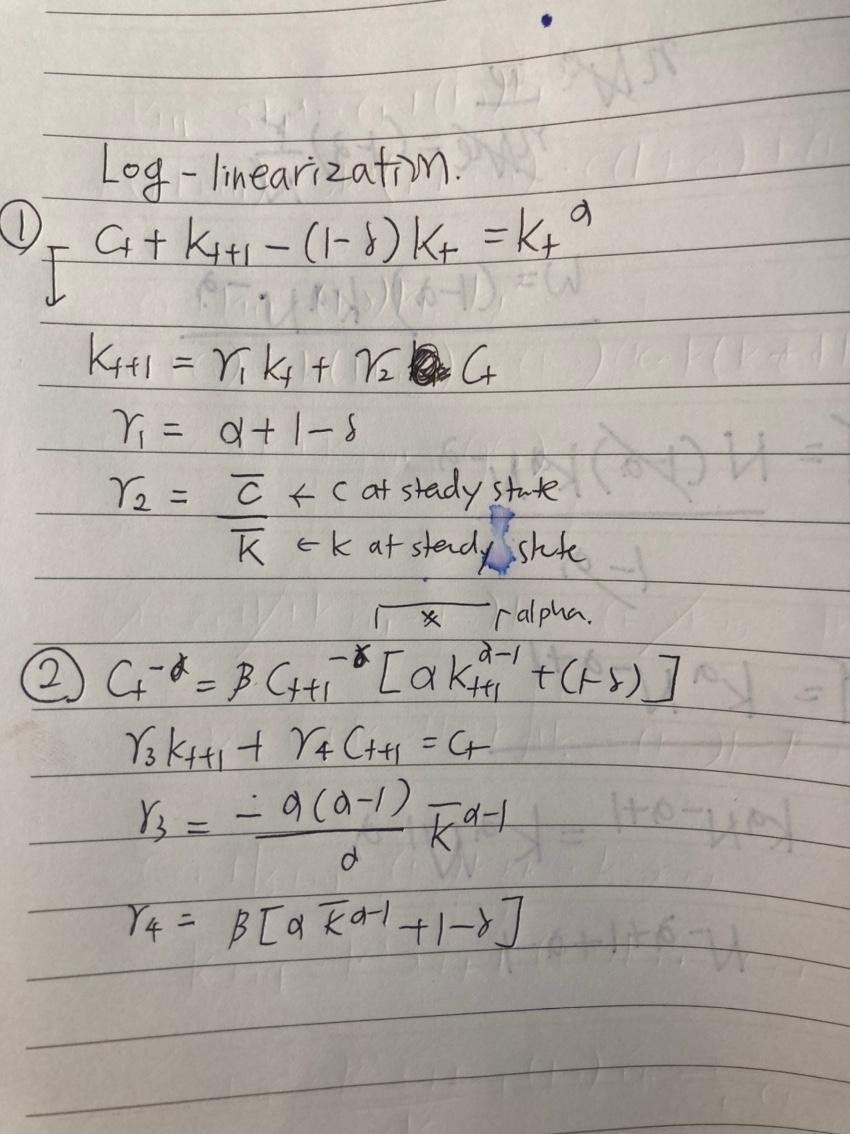 Log-linearization.
① Ct + kt+1 - (1-δ) kt = kt^α
kt+1 = γ1 kt + γ2 Ct
γ1 = α+1-δ
γ2 = C̄ ← C at stedy state
K̄ ← k at stedy state
* alpha.
② Ct^-α = β Ct+1^-α [α kt+1^α-1 + (1-δ)]
γ3 kt+1 + γ4 Ct+1 = Ct
γ3 = - α(α-1) / α k̄^α-1
γ4 = β[α k̄^α-1 + 1-δ]